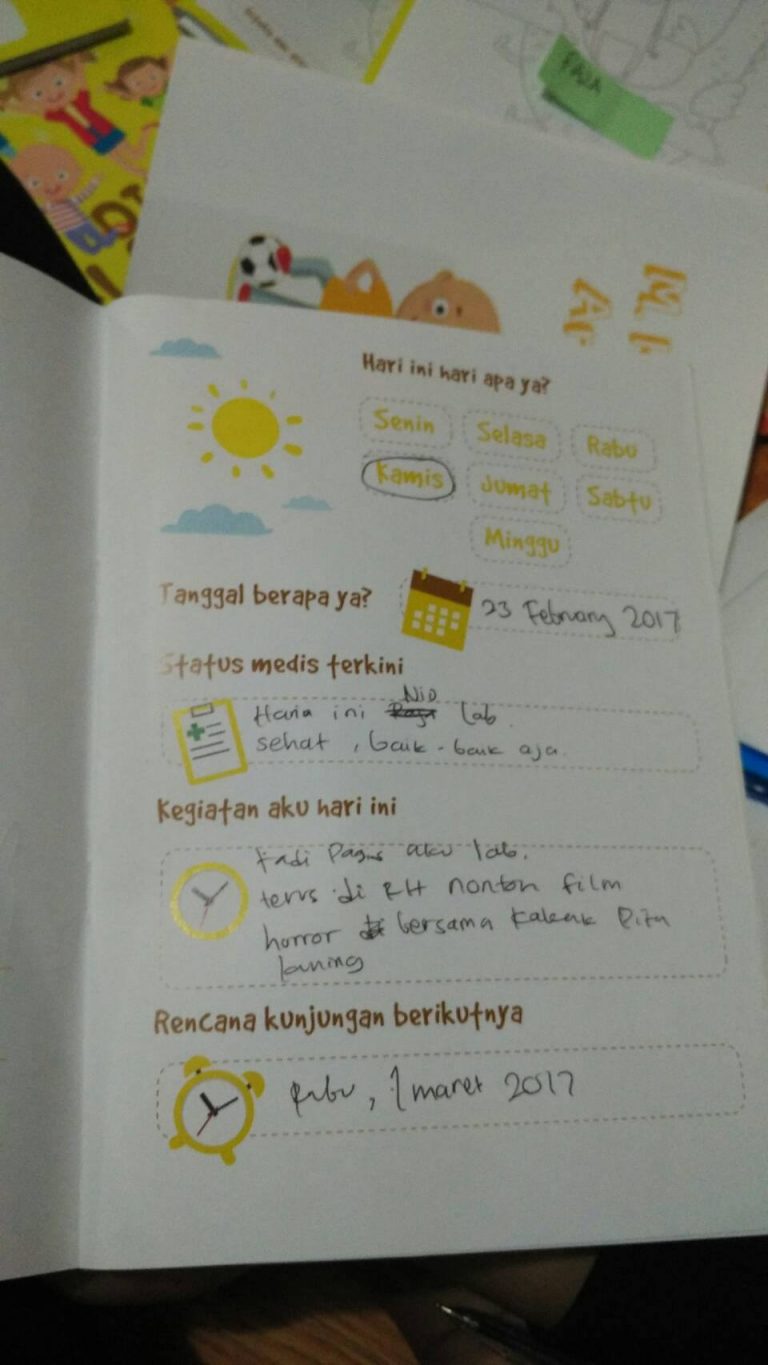 FAJA
Hari ini hari apa ya?
Senin Selasa Rabu
Kamis Jumat Sabtu
Minggu
Tanggal berapa ya?
23 February 2017
Status medis terkini
Haria ini Nio lab.
sehat, baik-baik aja.
Kegiatan aku hari ini
tadi Pagi aku lab.
terus di RH nonton film
horror bersama kakak Rita
Rencana kunjungan berikutnya
Rabu, 1 maret 2017